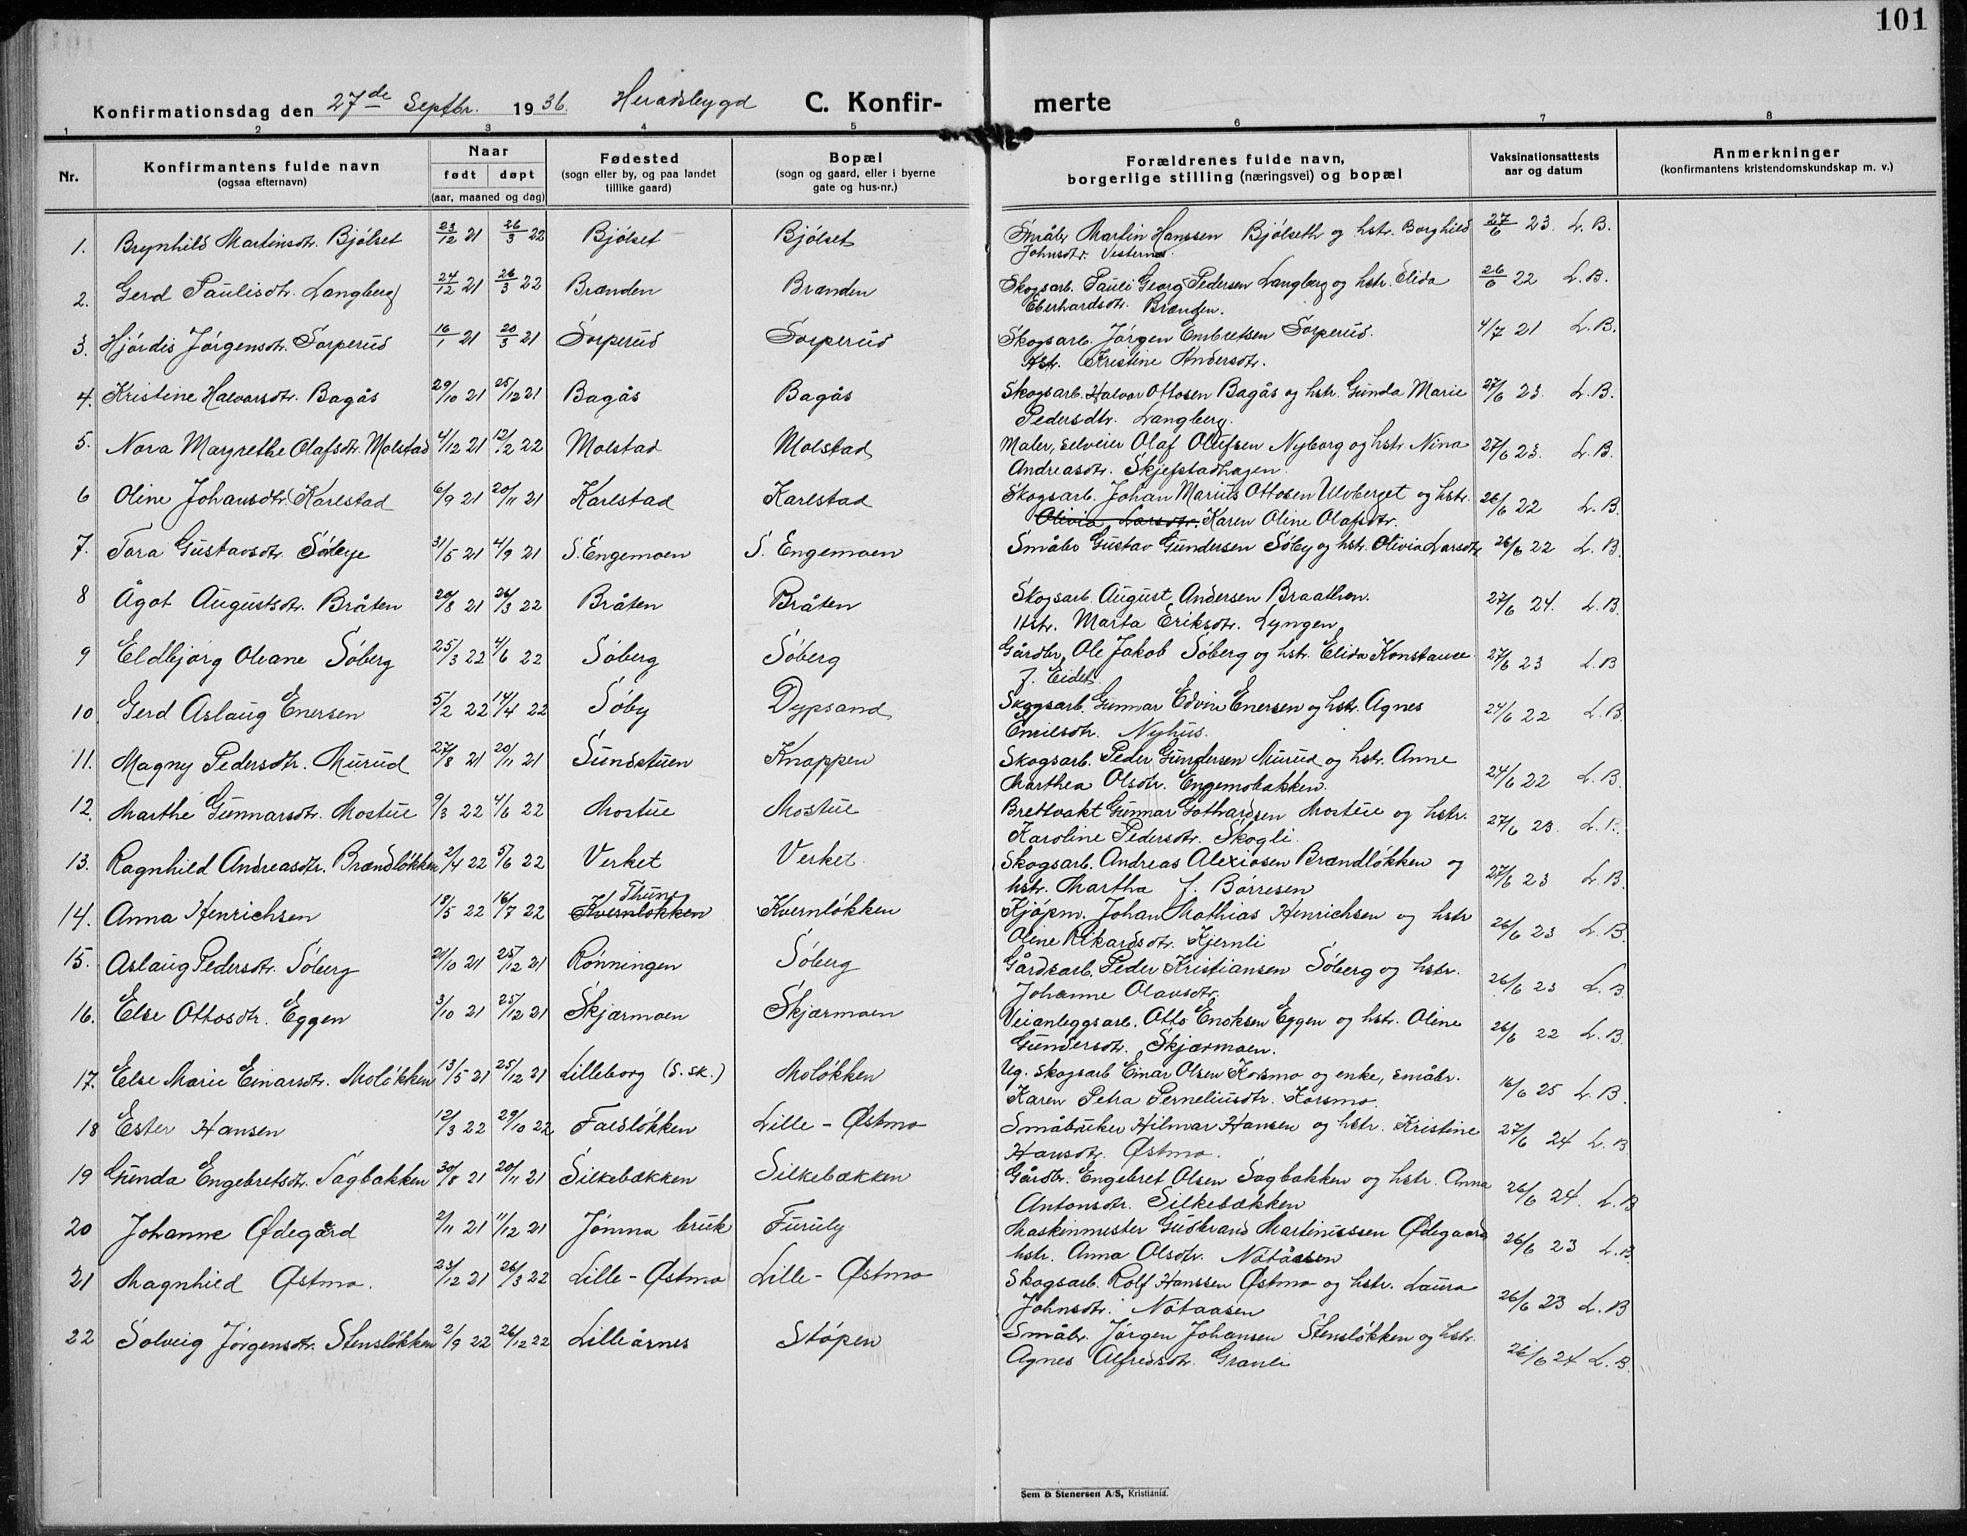 101
Konfirmationsdag den 27de Septbr. 1936. Heradsbygd C. Konfir- merte
1 2 3 4 5 6 7 8
Nr. Konfirmantens fulde navn (ogsaa efternavn) Naar født døpt (aar, maaned og dag) Fødested (sogn eller by, og paa landet tillike gaard) Bopæl (sogn og gaard, eller i byerne gate og hus-nr.) Forældrenes fulde navn, borgerlige stilling (næringsvei) og bopæl Vaksinationsattests aar og datum Anmerkninger (konfirmantens kristendomskundskap m. v.)
1. Brynhild Martinsdtr. Bjölset 23/12 21 26/3 22 Bjölset Bjölset Småbr. Martin Hanssen Bjölseth og hstr. Borghild 27/6 23. L. B.
Johnsdtr. Vesterna
2. Gerd Paulisdtr. Langberg 24/12 21 26/3 22 Brænden Brænden Skogsarb. Pauli Georg Pedersen Langberg og hstr. Elida 26/6 22 L. B.
Eberhardsdtr. Brænden.
3. Hjördis Jörgensdtr. Sorperud 16/1 21 20/3 21 Sorperud Sorperud Skogsarb. Jörgen Embretsen Sorperud. 4/7 21 L. B.
Hstr. Kristine Andersdtr.
4. Kristine Halvorsdtr. Bagås 29/10 21 25/12 21 Bagås Bagås Skogsarb. Halvor Ottosen Bagås og hstr. Gunda Marie 27/6 23. L. B.
Pedersdtr. Langberg.
5. Nora Margrethe Olafsdtr. Molstad 4/12 21 12/2 22 Molstad Molstad Maler, selveier Olaf Olufsen Nyborg og hstr. Nina 27/6 23. L. B.
Andreasdtr. Skjefstadhagen.
6 Oline Johansdtr. Karlstad 6/9 21 20/11 21 Karlstad Karlstad Skogsarb. Johan Marius Ottosen Ulvberget og hstr. 26/6 22 L. B.
Olivia Larsdtr. Karen Oline Olafsdtr.
7. Tora Gustavsdtr. Söbye 31/5 21 4/9 21 S. Engemoen S. Engemoen Småbr Gustav Gundersen Söby og hstr. Olivia Larsdtr. 26/6 22 L. B.
8 Ågot Augustsdtr. Bråten 20/8 21 26/3 22 Bråten Bråten Skogsarb. August Andersen Braathen. 27/6 24. L. B.
Hstr. Marta Eriksdtr. Lyngen
9 Eldbjörg Oleane Söberg 25/3 22 4/6 22 Söberg Söberg Gårdbr. Ole Jakob Söberg og hstr. Elida Konstance 27/6 23 L. B
f. Eidet.
10 Gerd Aslaug Enersen 5/2 22 14/4 22 Söby Dypsand Skogsarb. Gunnar Edvin Enersen og hstr. Agnes 24/6 22 L. B.
Emilsdtr. Nyhus.
11. Magny Pedersdtr. Murud 27/8 21 20/11 21 Sundstuen Knappen Skogsarb. Peder Gundersen Murud og hstr. Anne 24/6 22 L. B.
Marthea Olsdtr. Engemobakken.
12. Marthe Gunnarsdtr. Mostue 9/3 22 4/6 22 Mostue Mostue Brettvakt Gunnar Gothardsen Mostue og hstr. 27/6 23. L. B.
Karoline Pedersdtr. Skogli.
13. Ragnhild Andreasdtr. Brændlökken 2/4 22 5/6 22 Verket Verket. Skogsarb. Andreas Alexiosen Brændlökken og 27/6 23 L. B.
hstr. Martha f. Börresen
14. Anna Henrichsen 18/5 22 16/7 22 Thung Kvernlökken Kvernlökken Kjöpm. Johan Mathias Henrichsen og hstr 26/6 23 L. B.
Oline Rikardsdtr. Kjernli
15. Aslaug Pedersdtr. Söberg 21/10 21 25/12 21 Rönningen Söberg Gårdsarb. Peder Kristiansen Söberg og hstr. 26/6 23 L. B.
Johanne Olausdtr.
16. Else Ottosdtr. Eggen 3/10 21 25/12 21 Skjærmoen Skjærmoen Veianleggsarb. Otto Enoksen Eggen og hstr. Oline 26/6 22 L. B.
Gundersdtr. Skjærmoen.
17. Else Marie Einarsdtr. Molökken 13/5 21 25/12 21 Lilleborg (S. sk.) Molökken Ug. skogsarb Einar Olsen Korsmo og enke, småbr. 16/6 25 L. B.
Karen Petra Perneliusdtr. Korsmo.
18 Ester Hansen 12/3 22 29/10 22 Faldlökken Lille-Østmo Småbruker Hilmar Hansen og hstr. Kristine 27/6 24 L. B
Hansdtr. Østmo.
19 Gunda Engebretsdtr. Sagbakken 30/8 21 20/11 21 Silkebækken Silkebækken Gårdbr. Engebret Olsen Sagbakken og hstr. Anna 26/6 24. L. B
Antonsdtr. Silkebækken
20 Johanne Ødegård 2/11 21 11/12 21 Jömna bruk Furuly Maskinmester Gudbrand Martinussen Ødegaard 26/6 23 L. B.
hstr. Anna Olsdtr. Notåsen
21 Magnhild Østmo. 24/12 21 26/3 22 Lille-Østmo Lille-Østmo Skogsarb. Rolf Hanssen Østmo og hstr. Laura 26/6 23 L. B
Johnsdtr. Notaasen
22 Solveig Jörgensdtr. Stenslökken 2/9 22 26/12 22 Lilleårnes Stöpen Småbr. Jörgen Johansen Stenslökken og hstr. 26/6 24 L. B.
Agnes Alfredsdtr. Granli
Sem & Stenersen A/S, Kristiania.